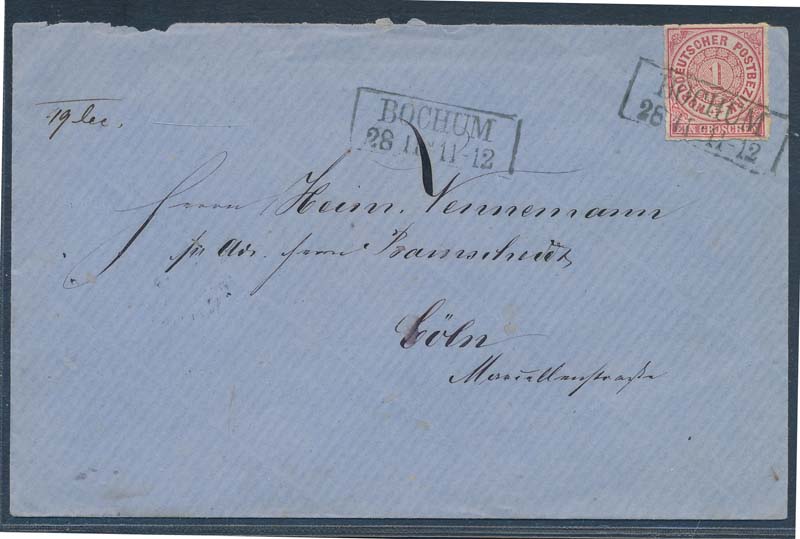 NORDDEUTSCHER POSTBEZIRK
1
EIN GROSCHEN
BOCHUM
28 11 11-12
BOCHUM
28 11 11-12
Herrn Heinr. Vennemann
pr Adr. Herrn Ramscheidt
Cöln
Marcellenstraße